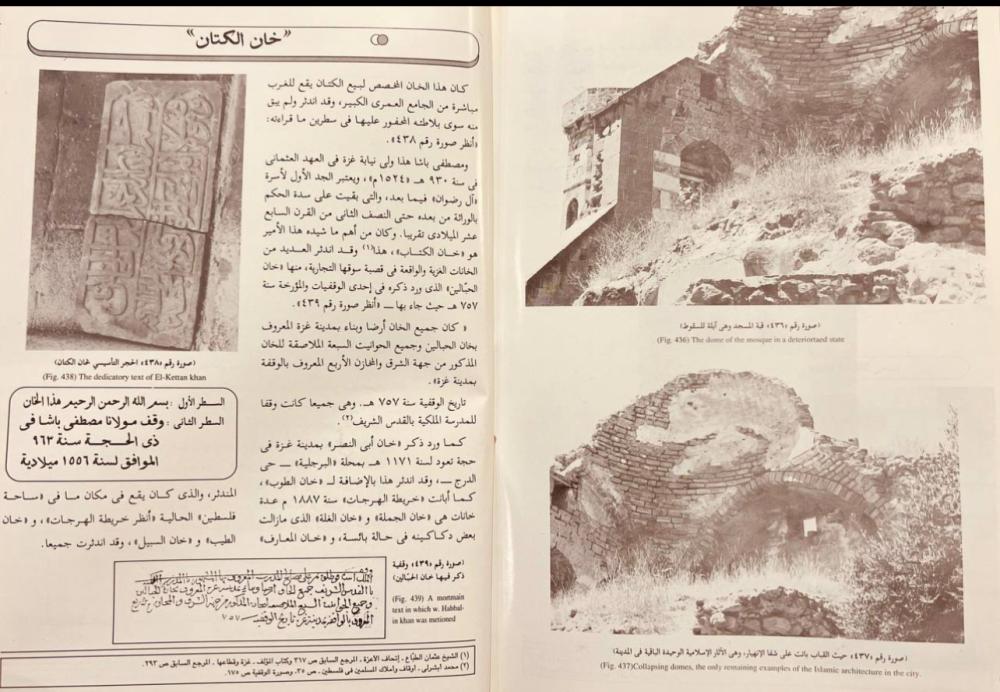 «خان الكتان»
كان هذا الخان المخصص لبيع الكتان يقع للغرب
مباشرة من الجامع العمرى الكبير، وقد اندثر ولم يبق
منه سوى بلاطته المحفور عليها فى سطرين ما قراءته:
«أنظر صورة رقم ٤٣٨».
ومصطفى باشا هذا ولى نيابة غزة فى العهد العثمانى
فى سنة ٩٣٠ هـ «١٥٢٤م»، ويعتبر الجد الأول لأسرة
«آل رضوان» فيما بعد، والتى بقيت على سدة الحكم
بالوراثة من بعده حتى النصف الثانى من القرن السابع
عشر الميلادى تقريبا. وكان من أهم ما شيده هذا الأمير
هو «خان الكتاب»، هذا(١) وقد اندثر العديد من
الخانات الغزية والواقعة فى قصبة سوقها التجارية، منها «خان
الحبّالين» الذى ورد ذكره في إحدى الوقفيات والمؤرخة سنة
٧٥٧ هـ حيث جاء بها ــ «أنظر صورة رقم ٤٣٩».
« كان جميع الخان أرضا وبناء بمدينة غزة المعروف
بخان الحبالين وجميع الحوانيت السبعة الملاصقة للخان
المذكور من جهة الشرق والمخازن الأربع المعروف بالوقفة
بمدينة غزة».
تاريخ الوقفية سنة ٧٥٧ هـ. وهى جميعا كانت وقفا
للمدرسة الملكية بالقدس الشريف(٢).
كما ورد ذكر «خان أبى النصر» بمدينة غزة فى
حجة تعود لسنة ١١٧١ هـ بمحلة «البرجلية» ــ حى
الدرج ــ، وقد اندثر هذا بالإضافة لـ «خان الطوب»،
كما أبانت «خريطة الهرجات» سنة ١٨٨٧ م عدة
خانات هى «خان الجملة» و «خان الغلة» الذى مازالت
بعض دكاكينه فى حالة بائسة، و «خان المعارف»
(صورة رقم «٤٣٨» الحجر التأسيسي لخان الكتان)
(Fig. 438) The dedicatory text of El-Kettan khan
السطر الأول : بسم الله الرحمن الرحيم هذا الخان
السطر الثانى : وقف مولانا مصطفى باشا فى
ذى الحجة سنة ٩٦٣
الموافق لسنة ١٥٥٦ ميلادية
المندثر، والذى كان يقع فى مكان ما فى «ساحة
فلسطين» الحالية «أنظر خريطة الهرجات»، و «خان
الطيب» و «خان السبيل»، وقد اندثرت جميعا.
(صورة رقم «٤٣٩» وقفية
ذكر فيها خان الحبّالين)
(Fig. 439) A mortmain
text in which w. Habbal-
in khan was metioned
(١) الشيخ عثمان الطبّاع . إتحاف الأعزة . المرجع السابق ص ٣١٧ وكتاب المؤلف . غزة وقطاعها . المرجع السابق ص ٢٩٣.
(٢) محمد أبشرلى . أوقاف وأملاك المسلمين فى فلسطين . ص ٣٥. وصورة الوقفية ص ٦٧٥.
(صورة رقم «٤٣٦» قبة المسجد وهى آيلة للسقوط)
(Fig. 436) The dome of the mosque in a deteriortaed state
(صورة رقم «٤٣٧» حيث القباب باتت على شفا الإنهيار، وهى الآثار الإسلامية الوحيدة الباقية فى المدينة)
(Fig. 437)Collapsing domes, the only remaining examples of the Islamic architecture in the city.